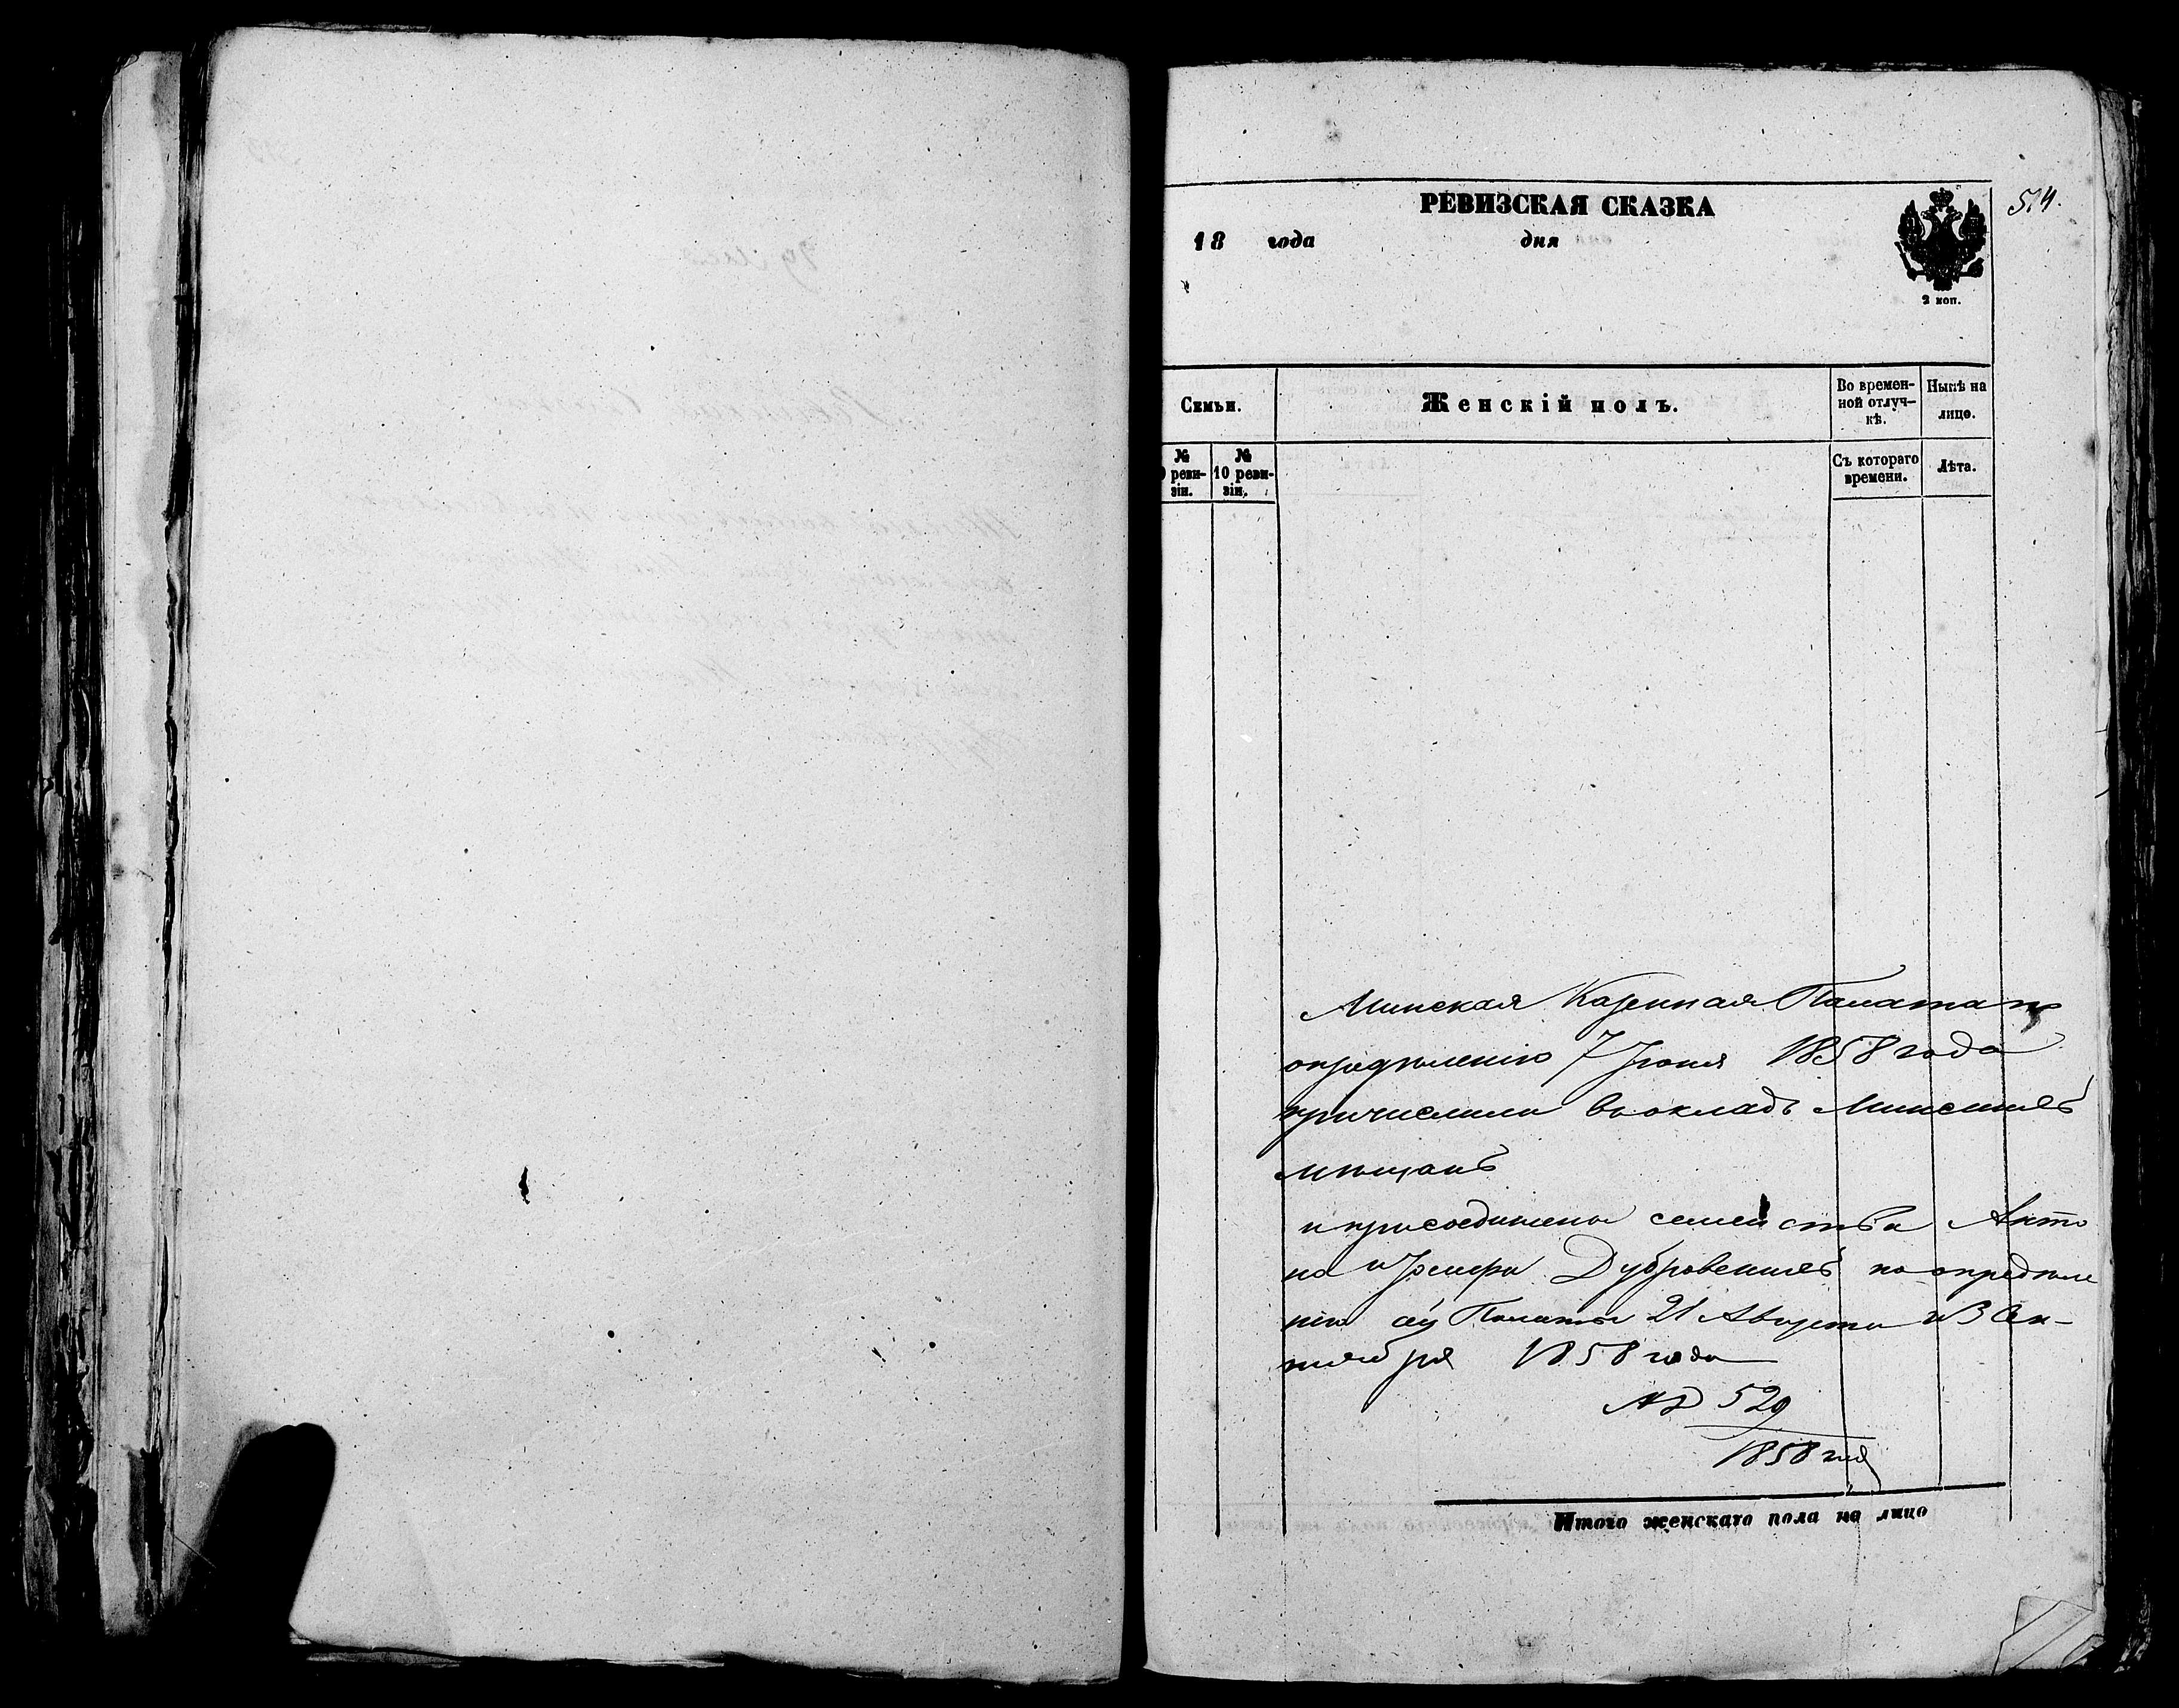 514.
РЕВИЗСКАЯ СКАЗКА
18 года дня
2 коп.
Семьи.
Женскій полъ.
Во времен-
ной отлуч-
кѣ.
Нынѣ на
лицо.
№
9 реви-
зіи.
№
10 реви-
зіи.
Съ котораго
времени.
Лѣта.
Минская Казенная Палата по
опредѣленію 7 Іюня 1858 года
причислила въ окладъ Минскихъ
мѣщанъ
и присоединены семейства Анто
на и Іосифа Дубровскихъ по опредѣле
нію Палаты 21 Августа и 3 Сен-
тября 1858 года
№ 529
1858 год
Итого женскаго пола на лицо